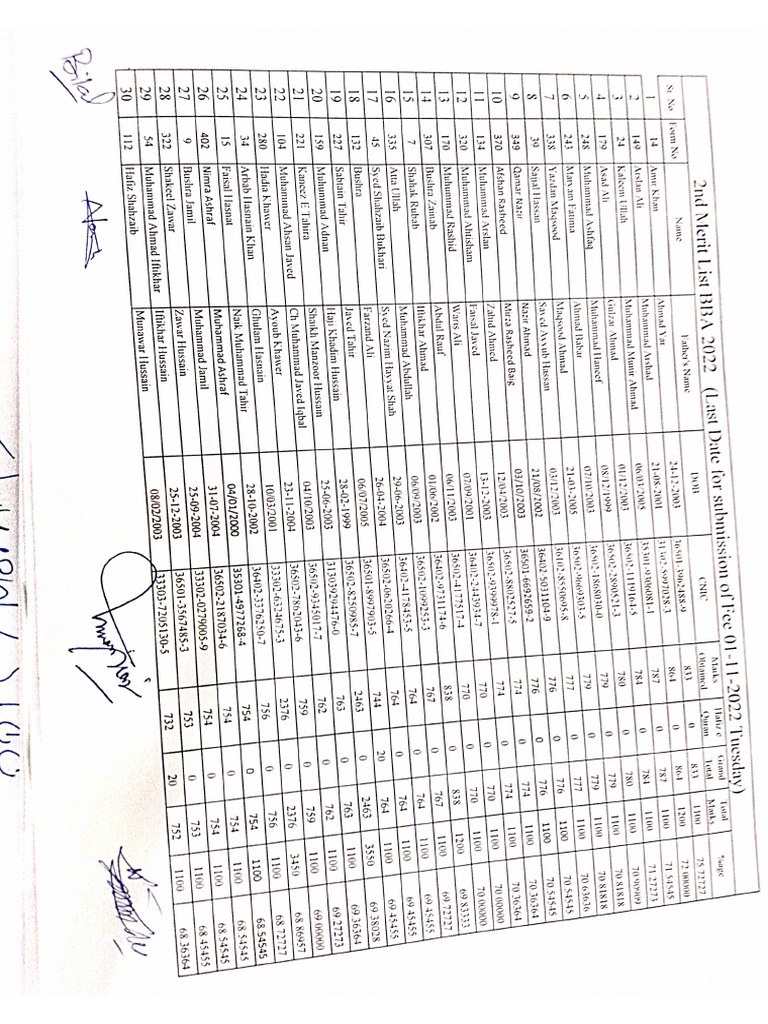 2nd Merit List BBA 2022 (Last Date for submission of Fee 01-11-2022 Tuesday)
Sr No Form No Name Father's Name DOB CNIC Marks Obtained Hafiz e Quran Grand Total Total Marks %age
1 14 Amir Khan Ahmad Yar 24-12-2003 36501-3962488-9 833 0 833 1100 75.72727
2 149 Arslan Ali Muhammad Arshad 21-08-2001 31302-5997028-3 864 0 864 1200 72.00000
3 24 Kaleem Ullah Muhammad Munir Ahmad 06/03/2005 35301-9306081-1 787 0 787 1100 71.54545
4 179 Asad Ali Gulzar Ahmad 01/12/2003 36502-1119164-5 784 0 784 1100 71.27273
5 248 Muhammad Ashfaq Muhammad Haneef 08/12/1999 36502-2890521-3 780 0 780 1100 70.90909
6 243 Maryam Fatima Ahmad Babar 07/10/2003 36502-1868030-0 779 0 779 1100 70.81818
7 338 Yazdan Maqsood Maqsood Ahmad 21-03-2005 36502-9069303-5 779 0 779 1100 70.81818
8 39 Sajjal Hassan Sayed Ayyub Hassan 03/12/2003 36102-8550695-8 777 0 777 1100 70.63636
9 349 Qamar Nazir Nazir Ahmad 21/08/2002 36402-5031104-9 776 0 776 1100 70.54545
10 370 Afshan Rasheed Mirza Rasheed Baig 03/10/2003 36501-6692659-2 776 0 776 1100 70.54545
11 134 Muhammad Arslan Zahid Ahmed 12/04/2003 36502-8802527-5 774 0 774 1100 70.36364
12 320 Muhammad Ahtisham Faisal Javed 13-12-2003 36502-9399978-1 774 0 774 1100 70.36364
13 170 Muhammad Rashid Waris Ali 07/09/2001 36402-3443934-7 770 0 770 1100 70.00000
14 307 Bushra Zainab Abdul Rauf 06/11/2003 36502-4177517-4 770 0 770 1100 70.00000
15 7 Shahak Rubab Iftikhar Ahmad 01/06/2002 36402-9731174-6 838 0 838 1200 69.83333
16 335 Atta Ullah Muhammad Abdullah 06/09/2003 36502-1099253-3 767 0 767 1100 69.72727
17 45 Syed Shahzaib Bukhari Syed Nazim Hayyat Shah 29-06-2003 36402-4178453-5 764 0 764 1100 69.45455
18 132 Bushra Farzand Ali 26-04-2004 36502-0620266-4 764 0 764 1100 69.45455
19 227 Sabtain Tahir Javed Tahir 06/07/2005 36501-8997903-5 744 20 764 1100 69.45455
20 159 Muhammad Adnan Haji Khadim Hussain 28-02-1999 36502-8250985-7 2463 0 2463 3550 69.38028
21 221 Kaneez E Tahira Shaikh Manzoor Hussain 25-06-2003 3130392294476-0 763 0 763 1100 69.36364
22 104 Muhammad Ahsan Javed Ch Muhammad Javed Iqbal 04/10/2003 36502-9345017-7 762 0 762 1100 69.27273
23 280 Hadia Khawer Ayoub Khawer 23-11-2004 36502-7862043-6 759 0 759 1100 69.00000
24 34 Arbab Hasnain Khan Ghulam Hasnain 10/03/2001 33302-6324675-3 2376 0 2376 3450 68.86957
25 15 Faisal Hasnat Naik Muhammad Tahir 28-10-2002 36402-3376250-7 756 0 756 1100 68.72727
26 402 Nimra Ashraf Muhammad Ashraf 04/01/2000 35301-4977268-4 754 0 754 1100 68.54545
27 9 Bushra Jamil Muhammad Jamil 31-07-2004 36502-2187034-6 754 0 754 1100 68.54545
28 322 Shakeel Zawar Zawar Hussain 25-09-2004 33302-0279905-9 754 0 754 1100 68.54545
29 54 Muhammad Ahmad Iftikhar Iftikhar Hussain 25-12-2003 36501-3567485-3 753 0 753 1100 68.45455
30 112 Hafiz Shahzaib Munawar Hussain 08/02/2003 33303-7205130-5 732 20 752 1100 68.36364
Bilal